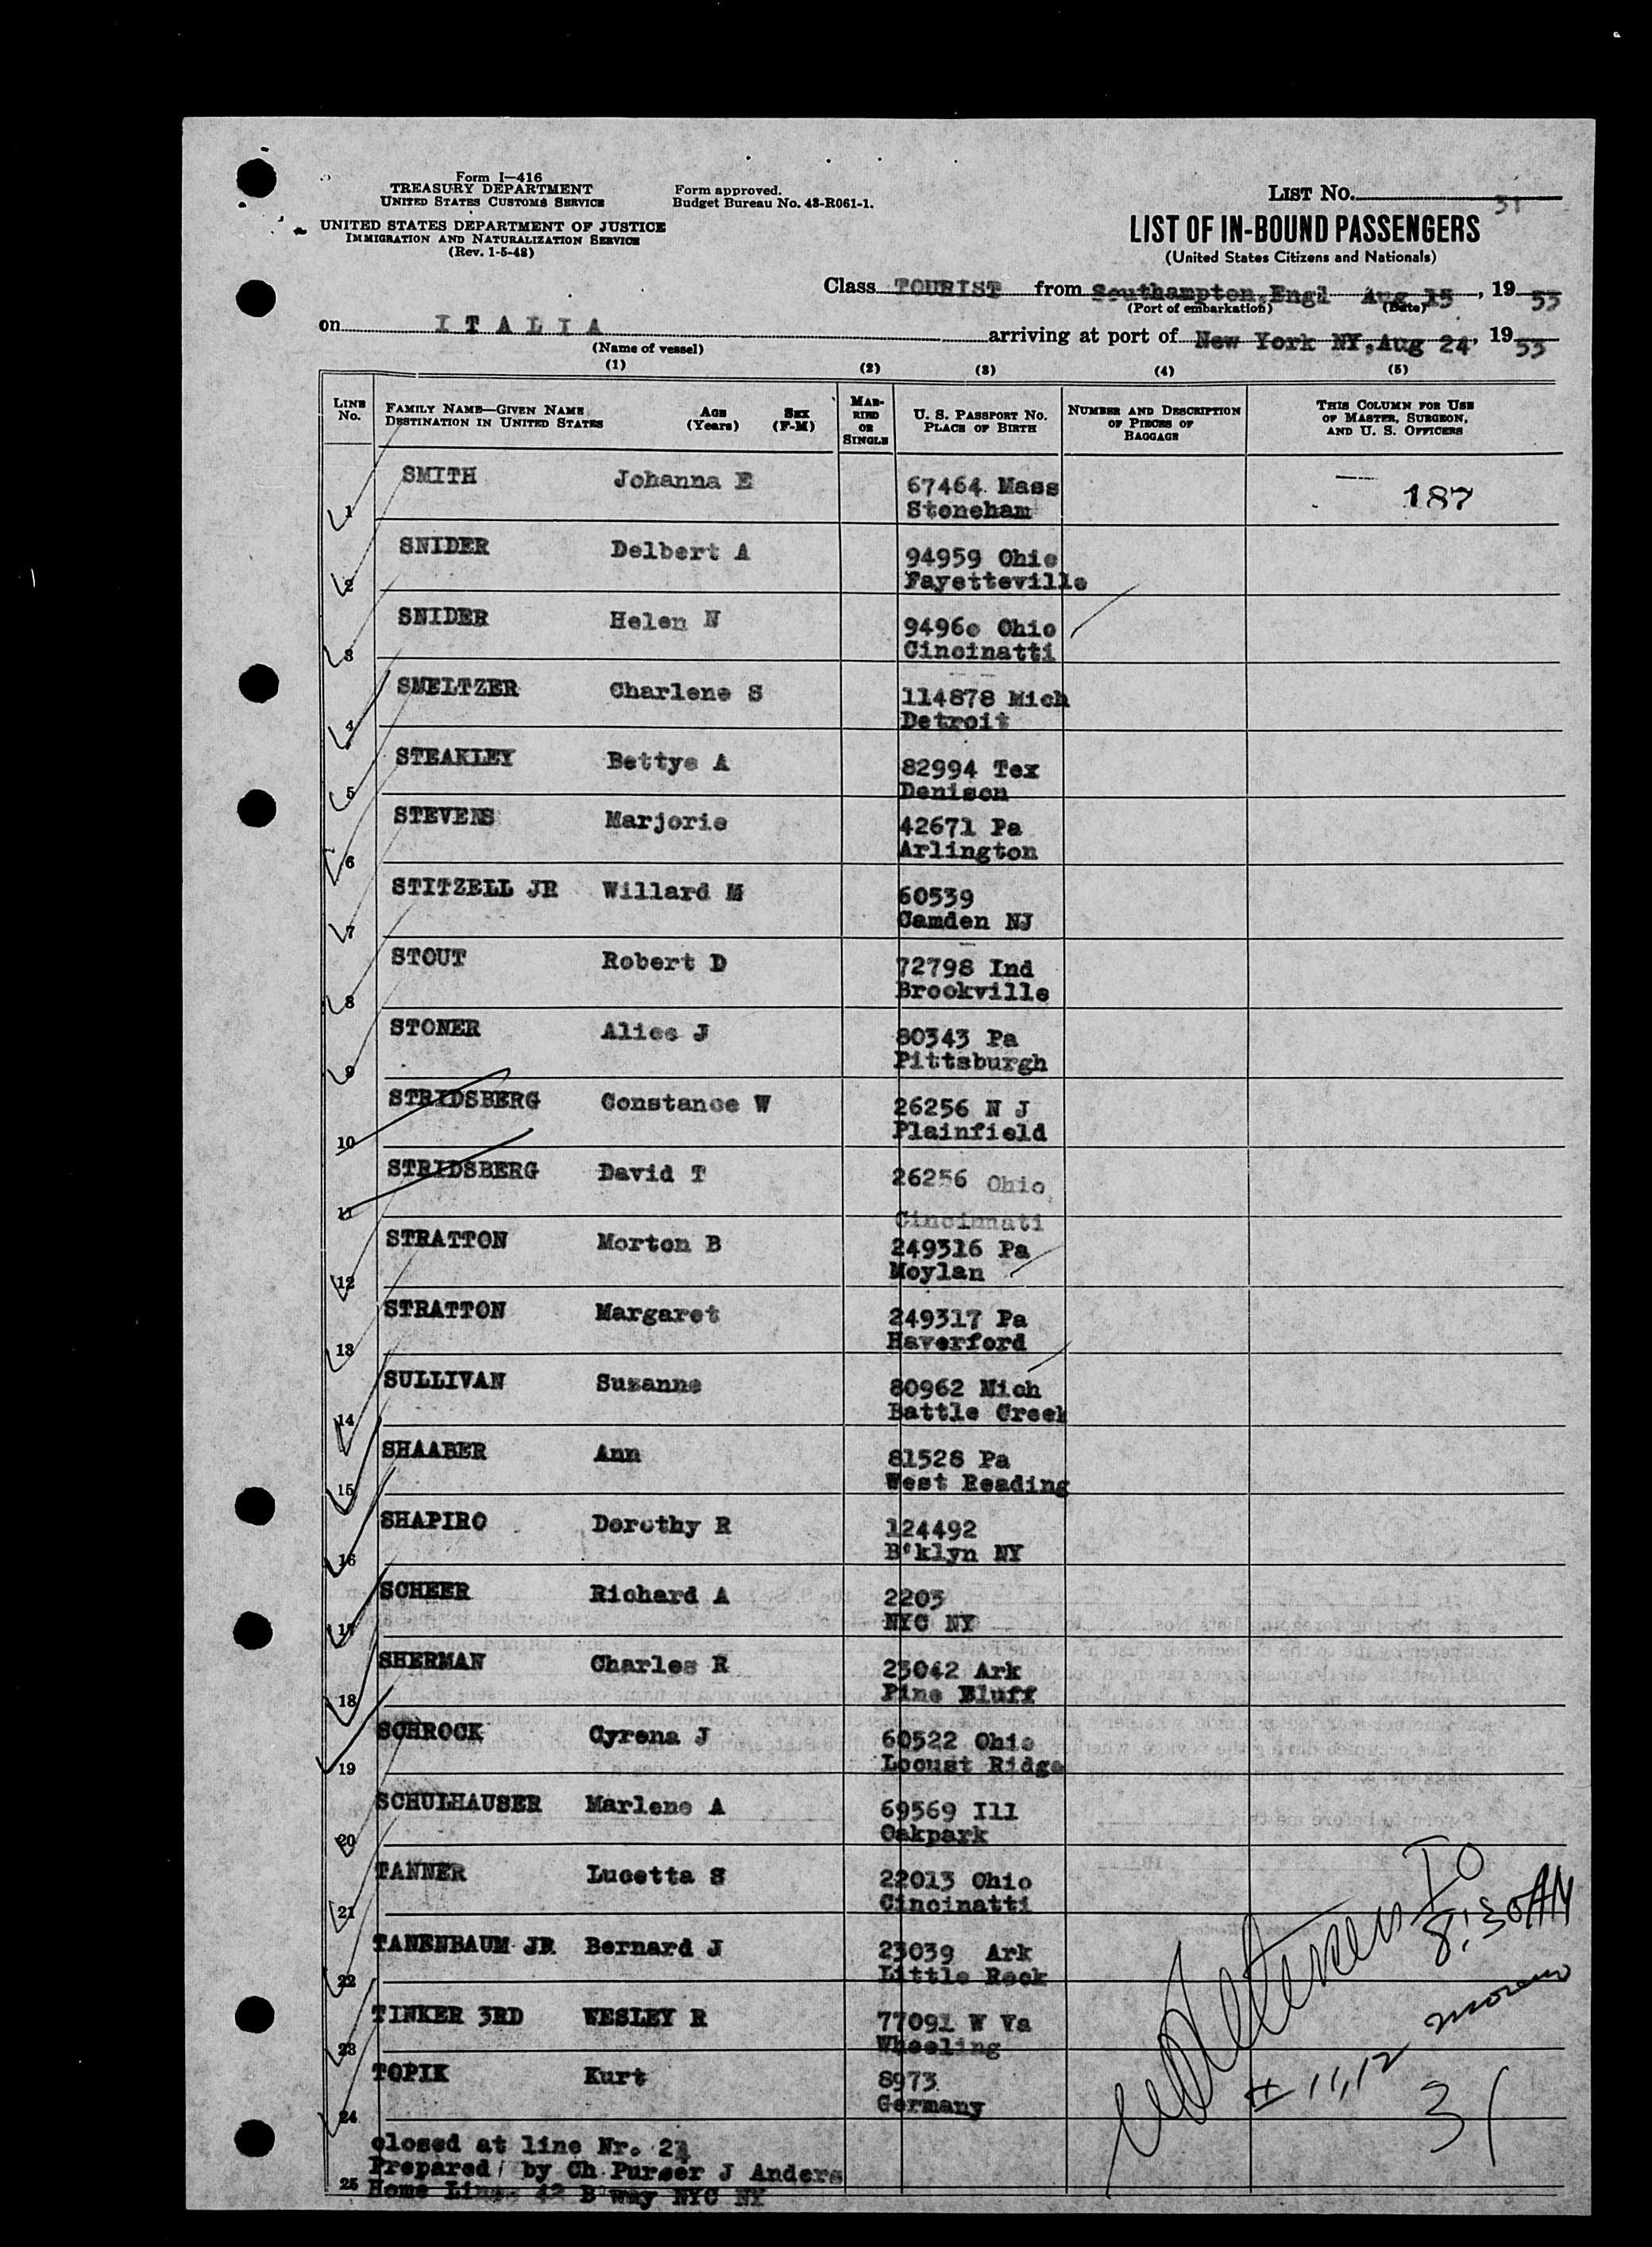 Form I—416
TREASURY DEPARTMENT
UNITED STATES CUSTOMS SERVICE
Form approved.
Budget Bureau No. 43-R061-1.
LIST NO. 31
UNITED STATES DEPARTMENT OF JUSTICE
IMMIGRATION AND NATURALIZATION SERVICE
(Rev. 1-5-48)
LIST OF IN-BOUND PASSENGERS
(United States Citizens and Nationals)
Class TOURIST from Southampton, Engl Aug 15, 19 53
(Port of embarkation) (Date)
on I T A L I A arriving at port of New York NY, Aug 24, 19 53
(Name of vessel)
(1) (2) (3) (4) (5)
LINE No. FAMILY NAME—GIVEN NAME DESTINATION IN UNITED STATES AGE (Years) SEX (F-M) MARRIED OR SINGLE U. S. PASSPORT NO. PLACE OF BIRTH NUMBER AND DESCRIPTION OF PIECES OF BAGGAGE THIS COLUMN FOR USE OF MASTER, SURGEON, AND U. S. OFFICERS
1 SMITH Johanna E 67464 Mass
Stoneham
187
2 SNIDER Delbert A 94959 Ohio
Fayetteville
3 SNIDER Helen N 94960 Ohio
Cincinatti
4 SMELTZER Charlene S 114878 Mich
Detroit
5 STEAKLEY Bettye A 82994 Tex
Denison
6 STEVENS Marjorie 42671 Pa
Arlington
7 STITZELL JR Willard M 60539
Camden NJ
8 STOUT Robert D 72798 Ind
Brookville
9 STONER Alice J 80343 Pa
Pittsburgh
10 STRIDSBERG Constance W 26256 N J
Plainfield
11 STRIDSBERG David T 26256 Ohio
Cincinnati
12 STRATTON Morton B 249316 Pa
Moylan
13 STRATTON Margaret 249317 Pa
Haverford
14 SULLIVAN Suzanne 80962 Mich
Battle Creek
15 SHAABER Ann 81528 Pa
West Reading
16 SHAPIRO Dorothy R 124492
B'klyn NY
17 SCHEER Richard A 2203
NYC NY
18 SHERMAN Charles R 23042 Ark
Pine Bluff
19 SCHROCK Cyrena J 60522 Ohio
Locust Ridge
20 SCHULHAUSER Marlene A 69569 Ill
Oakpark
21 TANNER Lucetta S 22013 Ohio
Cincinatti
22 TANENBAUM JR Bernard J 23039 Ark
Little Rock
23 TINKER 3RD WESLEY R 77091 W Va
Wheeling
24 TOPIK Kurt 8973
Germany
closed at line Nr. 24
Prepared by Ch Purser J Anders
25 Home Lines 42 B'way NYC NY
8:30 AM
11, 12
31